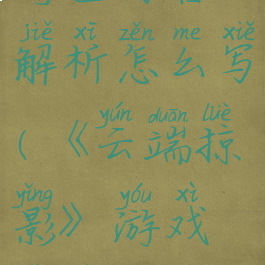 jiě xī zěn me xiě
解析怎么写
yún duān lüè
(《云端掠
yǐng yóu xì
影》游戏